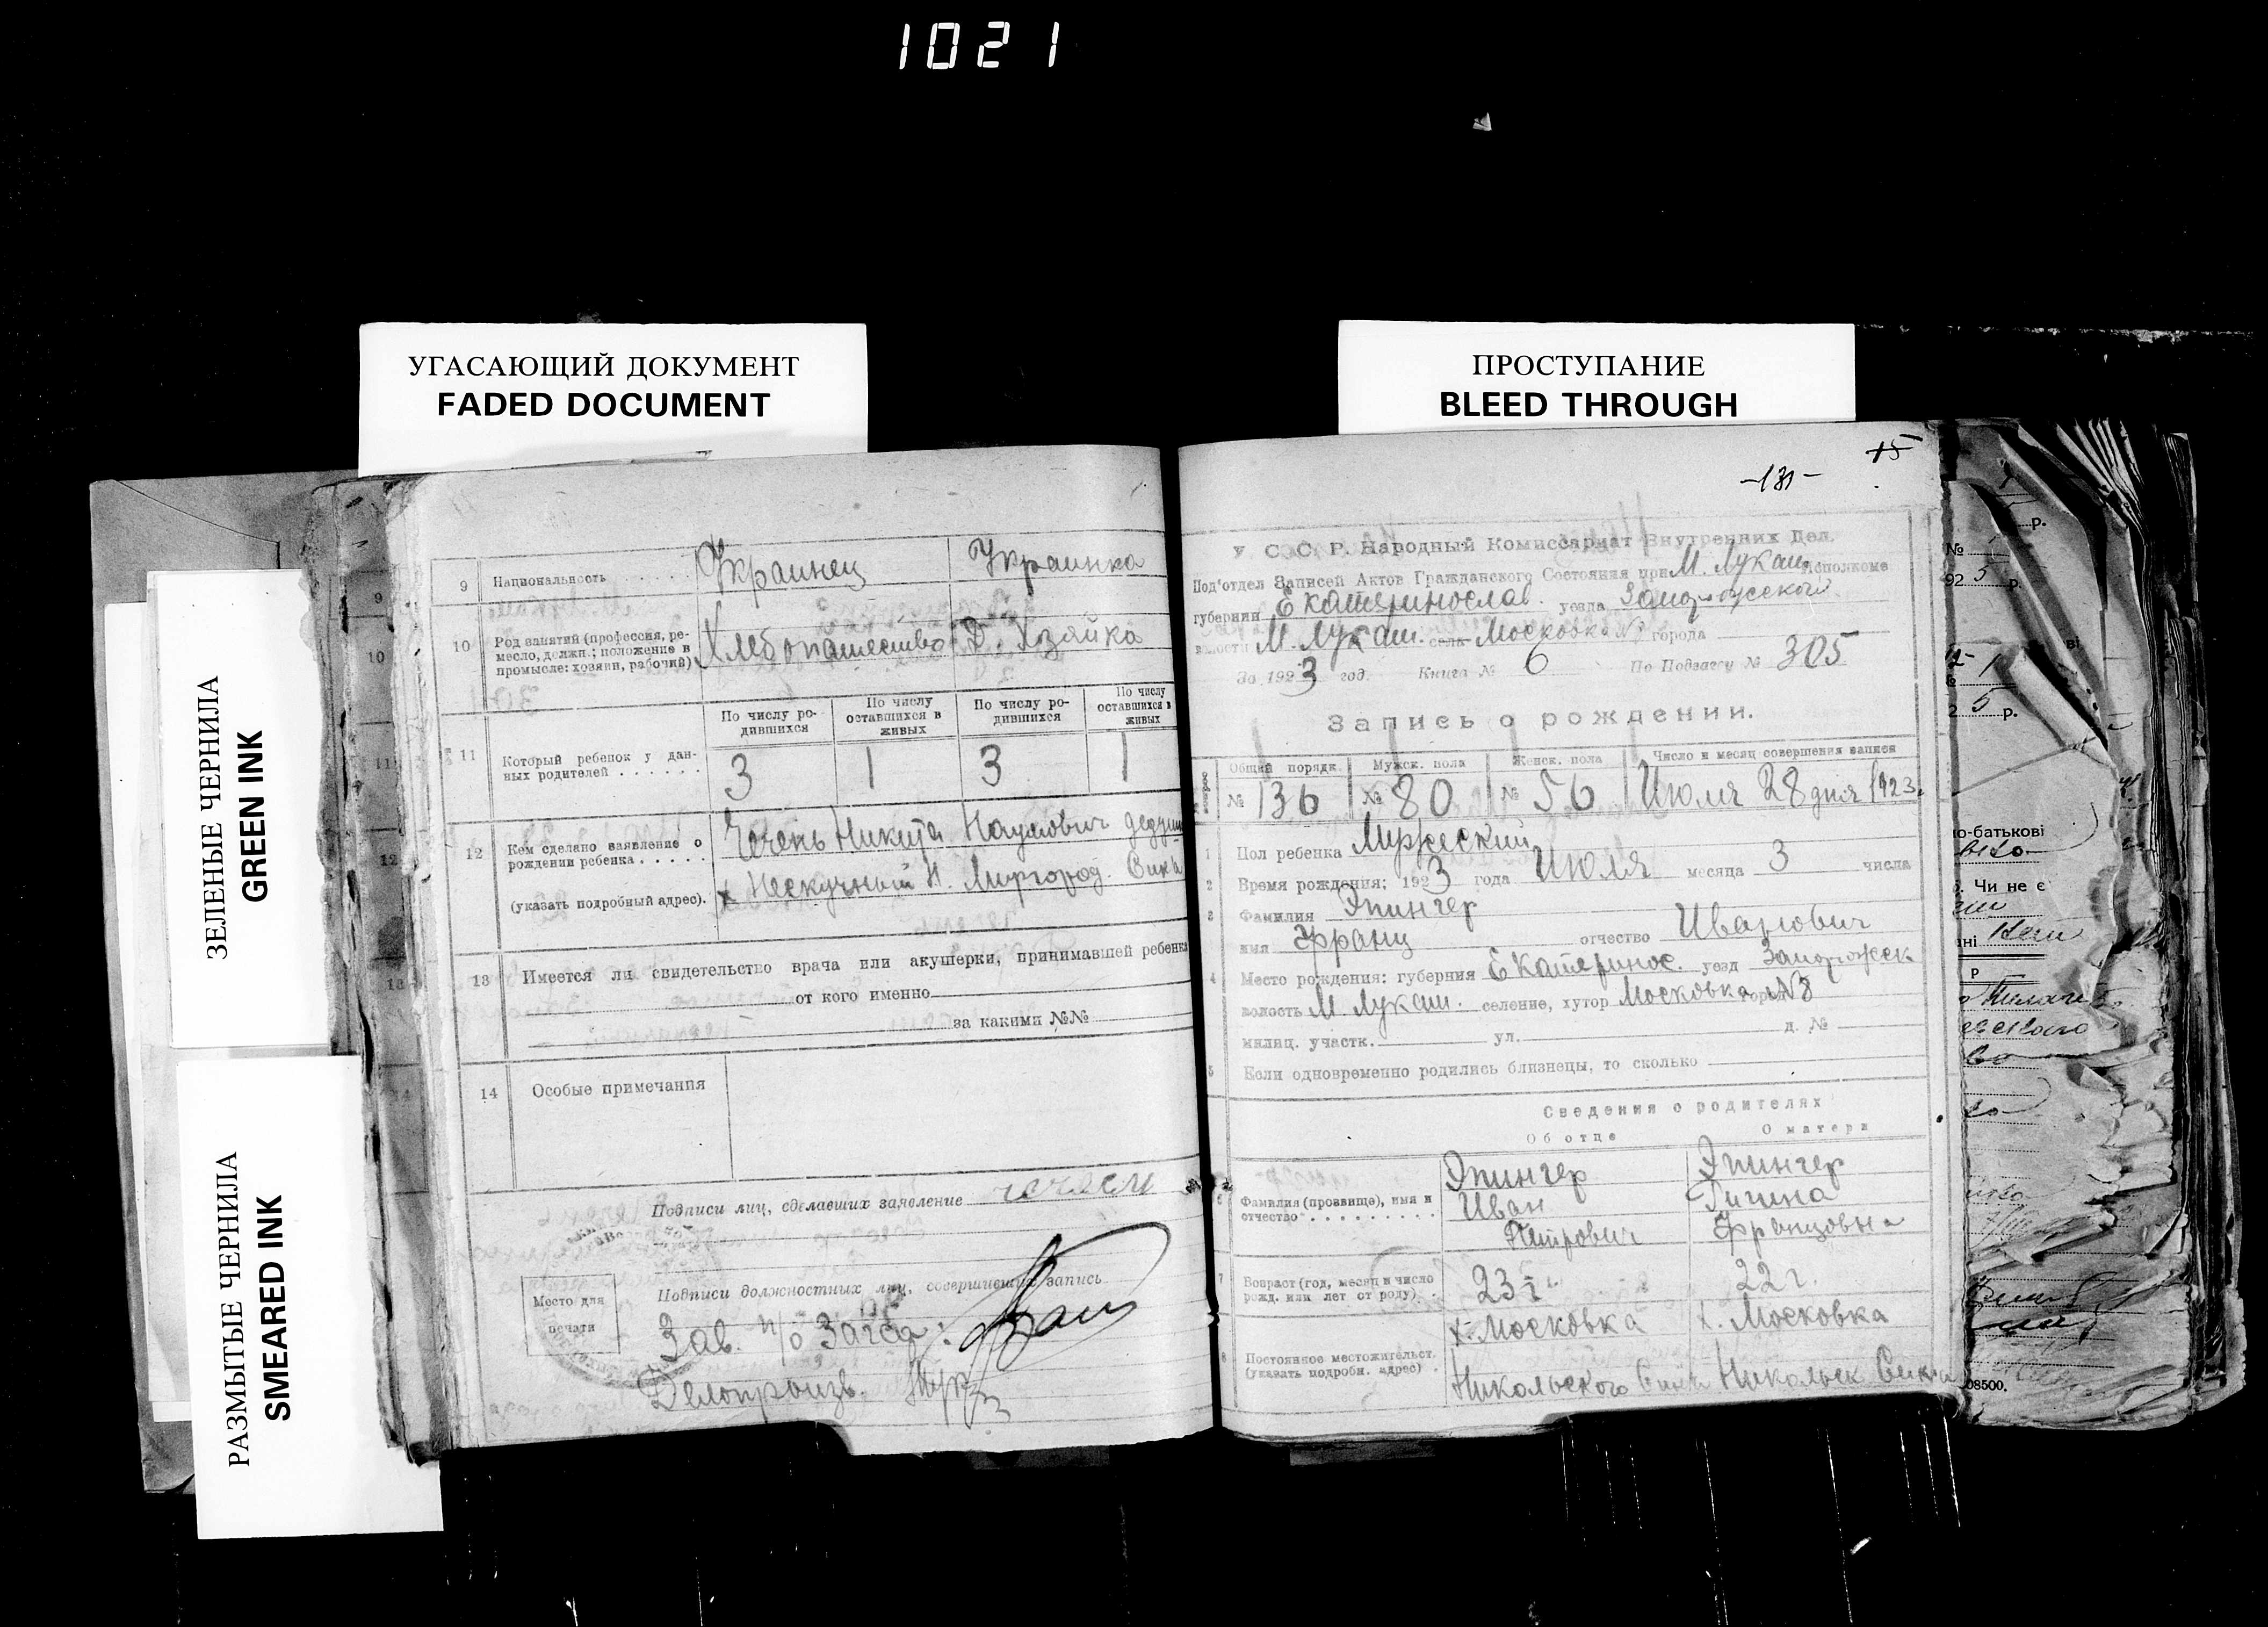 1021
УГАСАЮЩИЙ ДОКУМЕНТ
FADED DOCUMENT
ПРОСТУПАНИЕ
BLEED THROUGH
ЗЕЛЕНЫЕ ЧЕРНИЛА
GREEN INK
РАЗМЫТЫЕ ЧЕРНИЛА
SMEARED INK
9 Национальность Украинец Украинка
10 Род занятий (профессия, ре-
месло, должн.; положение в
промысле: хозяин, рабочий)
Хлебопашество Д. Хозяйка
По числу ро-
дившихся
По числу
оставшихся в
живых
По числу ро-
дившихся
По числу
оставшихся в
живых
11 Который ребенок у дан-
ных родителей
3 1 3 1
12 Кем сделано заявление о
рождении ребенка
(указать подробный адрес).
Чечень Никита Наумович
х Нескучный Н. Миргород.
13 Имеется ли свидетельство врача или акушерки, принимавшей ребенка
от кого именно
за какими №№
14 Особые примечания
Подписи лиц, сделавших заявление
Подписи должностных лиц, совершивших запись
Место для
печати
Зав. п/о Загса:
Делопроизв.
15
-131-
У. С. С. Р. Народный Комиссариат Внутренних Дел.
Под'отдел Записей Актов Гражданского Состояния при М. Лукаш. Исполкоме
губернии Екатеринослав. уезда
волости М. Лукаш. села Московка № города
За 1923 год. Книга № 6 По Подзагсу № 305
Запись о рождении.
Общий порядк. Мужск. пола Женск. пола Число и месяц совершения записи
№ 136 № 80 № 56 Июля 28 дня 1923.
1 Пол ребенка Мужеский
2 Время рождения: 1923 года Июля месяца 3 числа
3 Фамилия Эпингер
имя Франц отчество Иванович
4 Место рождения: губерния Екатеринос. уезд Запорожск
волость М. Лукаш. селение, хутор Московка №8
милиц. участк. ул. д. №
5 Если одновременно родились близнецы, то сколько
Сведения о родителях
Об отце О матери
6 Фамилия (прозвище), имя и
отчество
Эпингер Эпингер
Иван
Петрович Францовна
7 Возраст (год, месяц и число
рожд. или лет от роду)
23 г. 22 г.
8 Постоянное местожительст.
(указать подробн. адрес)
х. Московка х. Московка
Никольского Никольск.
08500.